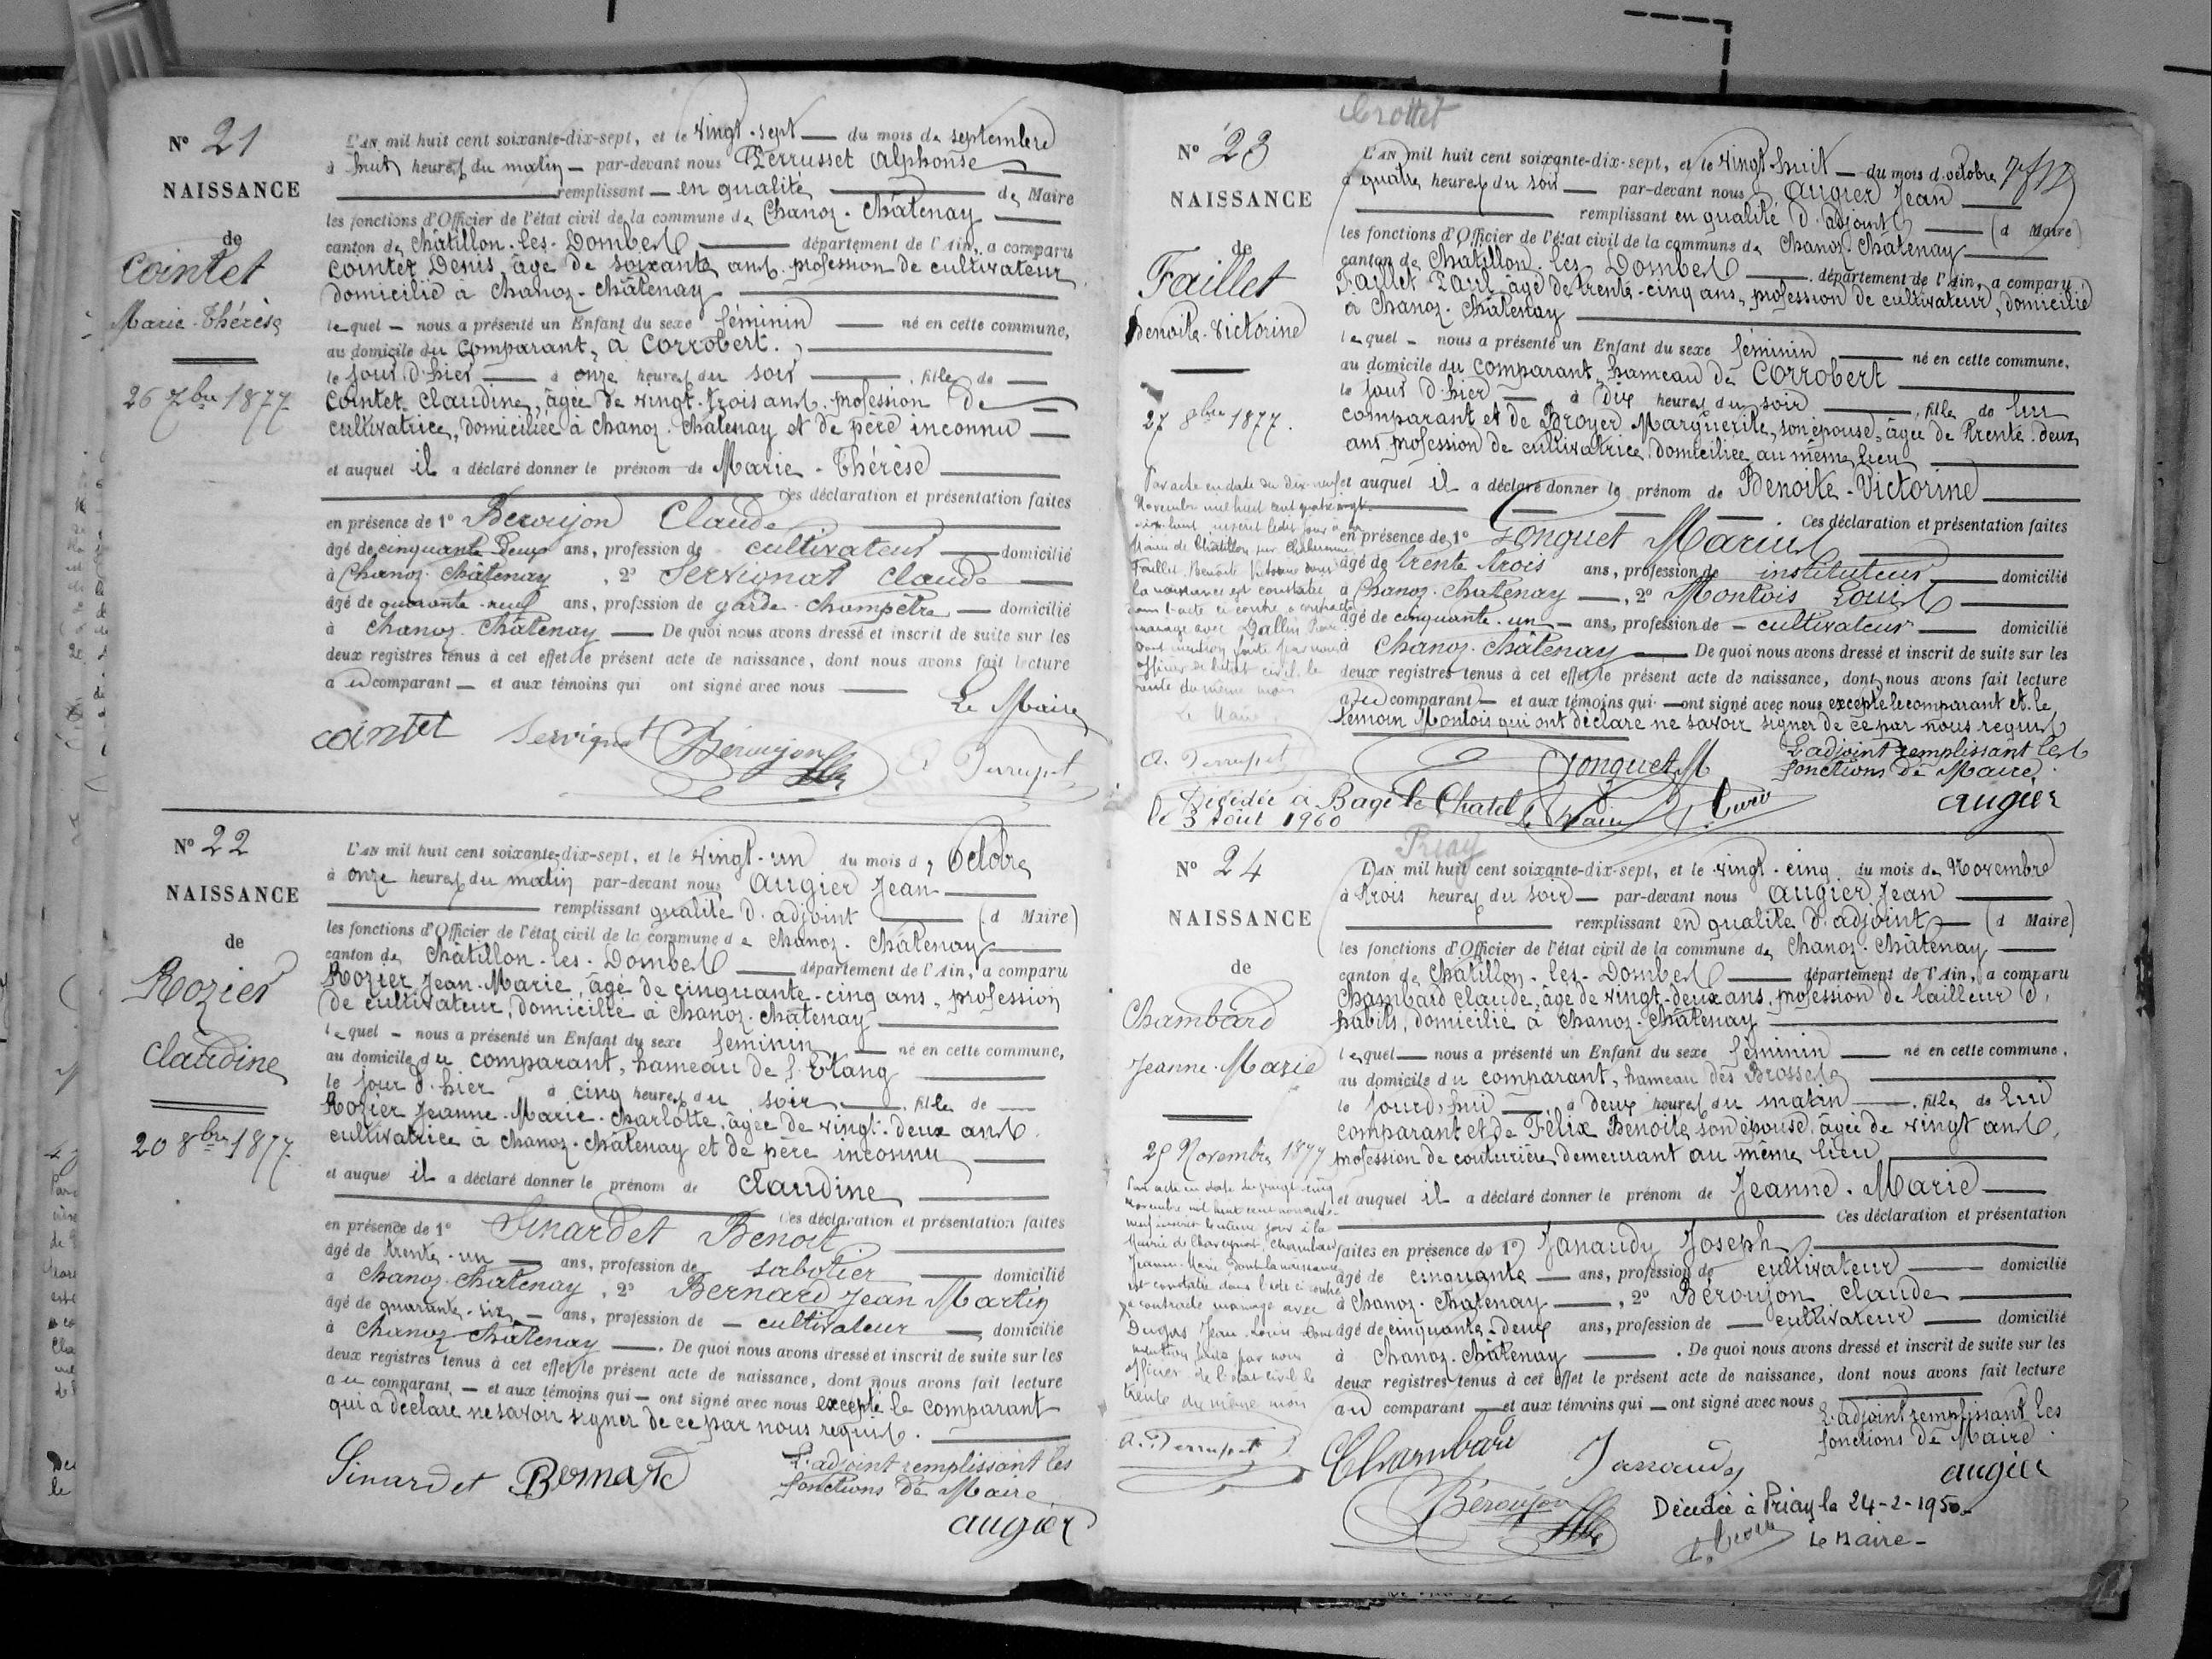 N° 21
NAISSANCE
de
Cointet
Marie-Thérèse
26 7bre 1877
L'AN mil huit cent soixante-dix-sept, et le vingt-sept du mois de septembre
à huit heures du matin par-devant nous Perrusset Alphonse
remplissant en qualité de Maire
les fonctions d'Officier de l'état civil de la commune de Chanoz-Châtenay
canton de Châtillon-les-Dombes département de l'Ain, a comparu
Cointet Denis, âgé de soixante ans, profession de cultivateur
domicilié à Chanoz-Châtenay
lequel nous a présenté un Enfant du sexe féminin né en cette commune,
au domicile du comparant, à Corrobert.
le jour d'hier à onze heures du soir, fille de
Cointet Claudine, âgée de vingt-trois ans, profession de
cultivatrice, domiciliée à Chanoz-Châtenay et de père inconnu
et auquel il a déclaré donner le prénom de Marie-Thérèse
Ces déclaration et présentation faites
en présence de 1° Beroujon Claude
âgé de cinquante deux ans, profession de cultivateur domicilié
à Chanoz-Châtenay, 2° Servignat Claude
âgé de quarante-neuf ans, profession de garde-champêtre domicilié
à Chanoz-Châtenay De quoi nous avons dressé et inscrit de suite sur les
deux registres tenus à cet effet le présent acte de naissance, dont nous avons fait lecture
au comparant et aux témoins qui ont signé avec nous
Le Maire
cointet Servignat Béroujon A. Perrusset
N° 22
NAISSANCE
de
Rozier
Claudine
20 8bre 1877
L'AN mil huit cent soixante-dix-sept, et le vingt-un du mois d'Octobre
à onze heures du matin par-devant nous Augier Jean
remplissant qualité d'adjoint (d Maire)
les fonctions d'Officier de l'état civil de la commune de Chanoz-Châtenay
canton de Châtillon-les-Dombes département de l'Ain, a comparu
Rozier Jean-Marie, âgé de cinquante-cinq ans, profession
de cultivateur, domicilié à Chanoz-Châtenay
lequel nous a présenté un Enfant du sexe féminin né en cette commune,
au domicile du comparant, hameau de l'Etang
le jour d'hier à cinq heures du soir, fille de
Rozier Jeanne-Marie-Charlotte, âgée de vingt-deux ans
cultivatrice à Chanoz-Châtenay et de père inconnu
et auque il a déclaré donner le prénom de Claudine
Ces déclaration et présentation faites
en présence de 1° Sinardet Benoit
âgé de trente-un ans, profession de sabotier domicilié
à Chanoz-Châtenay, 2° Bernard Jean Martin
âgé de quarante-six ans, profession de cultivateur domicilié
à Chanoz-Châtenay. De quoi nous avons dressé et inscrit de suite sur les
deux registres tenus à cet effet le présent acte de naissance, dont nous avons fait lecture
au comparant et aux témoins qui ont signé avec nous excepté le comparant
qui a déclaré ne savoir signer de ce par nous requis.
Sinardet Bernard L'adjoint remplissant les
fonctions de Maire
augier
Crottet
N° 23
NAISSANCE
de
Faillet
Benoite-Victorine
27 8bre 1877.
L'AN mil huit cent soixante-dix-sept, et le vingt-huit du mois d'octobre
à quatre heures du soir par-devant nous Augier Jean
remplissant en qualité d'adjoint (d Maire)
les fonctions d'Officier de l'état civil de la commune de Chanoz-Châtenay
canton de Châtillon-les-Dombes département de l'Ain, a comparu
Faillet Paul, âgé de trente-cinq ans, profession de cultivateur, domicilié
à Chanoz-Châtenay
lequel nous a présenté un Enfant du sexe féminin né en cette commune,
au domicile du comparant, hameau de Corrobert
le jour d'hier à dix heures du soir, fille de lui
comparant et de Broyer Marguerite, son épouse, âgée de trente-deux
ans, profession de cultivatrice domiciliée au même lieu
et auquel il a déclaré donner le prénom de Benoite-Victorine
Ces déclaration et présentation faites
en présence de 1° Jonquet Marius
âgé de trente trois ans, profession de instituteur domicilié
à Chanoz-Châtenay, 2° Montois Louis
âgé de cinquante-un ans, profession de cultivateur domicilié
à Chanoz-Châtenay De quoi nous avons dressé et inscrit de suite sur les
deux registres tenus à cet effet le présent acte de naissance, dont nous avons fait lecture
au comparant et aux témoins qui ont signé avec nous excepté le comparant et le
témoin Montois qui ont déclaré ne savoir signer de ce par nous requis
Par acte en date du dix-neuf
Novembre mil huit cent quatre vingt
dix-huit, inscrit ledit jour à la
Mairie de Châtillon sur Chalaronne
Faillet Benoite Victorine dont
la naissance est constatée
dans l'acte ci contre a contracté
mariage avec Dallin
Dont mention faite par nous
officier de l'état civil le
trente du même mois
Le Maire
A. Perrusset
Jonquet M L'adjoint remplissant les
fonctions de Maire.
augier
Décédée à Bagé le Chatel
le 3 Aout 1960
Le Maire
Priay
N° 24
NAISSANCE
de
Chambard
Jeanne-Marie
25 Novembre 1877
L'AN mil huit cent soixante-dix-sept, et le vingt-cinq du mois de Novembre
à trois heures du soir par-devant nous Augier Jean
remplissant en qualité d'adjoint (d Maire)
les fonctions d'Officier de l'état civil de la commune de Chanoz-Châtenay
canton de Châtillon-les-Dombes département de l'Ain, a comparu
Chambard Claude, âgé de vingt-deux ans, profession de tailleur d'
habits, domicilié à Chanoz-Châtenay
lequel nous a présenté un Enfant du sexe féminin né en cette commune,
au domicile du comparant, hameau des Brosses
le jourd'hui à deux heures du matin, fille de lui
comparant et de Félix Benoite, son épouse, âgée de vingt ans,
profession de couturière demeurant au même lieu
et auquel il a déclaré donner le prénom de Jeanne-Marie
Ces déclaration et présentation
faites en présence de 1° Janaudy Joseph
âgé de cinquante ans, profession de cultivateur domicilié
à Chanoz-Châtenay, 2° Béroujon Claude
âgé de cinquante-deux ans, profession de cultivateur domicilié
à Chanoz-Châtenay. De quoi nous avons dressé et inscrit de suite sur les
deux registres tenus à cet effet le présent acte de naissance, dont nous avons fait lecture
au comparant et aux témoins qui ont signé avec nous
Par acte en date du vingt-cinq
novembre mil huit cent nonante-
neuf inscrit le même jour à la
Mairie de Chaveyriat, Chambard
Jeanne-Marie dont la naissance
est constatée dans l'acte ci contre
a contracté mariage avec
Dugas Jean-Louis dont
mention faite par nous
officier de l'état civil le
trente du même mois
A. Perrusset
L'adjoint remplissant les
fonctions de Maire.
Chambard Janaudy augier
Béroujon
Décédée à Priay le 24-2-1950
Le Maire